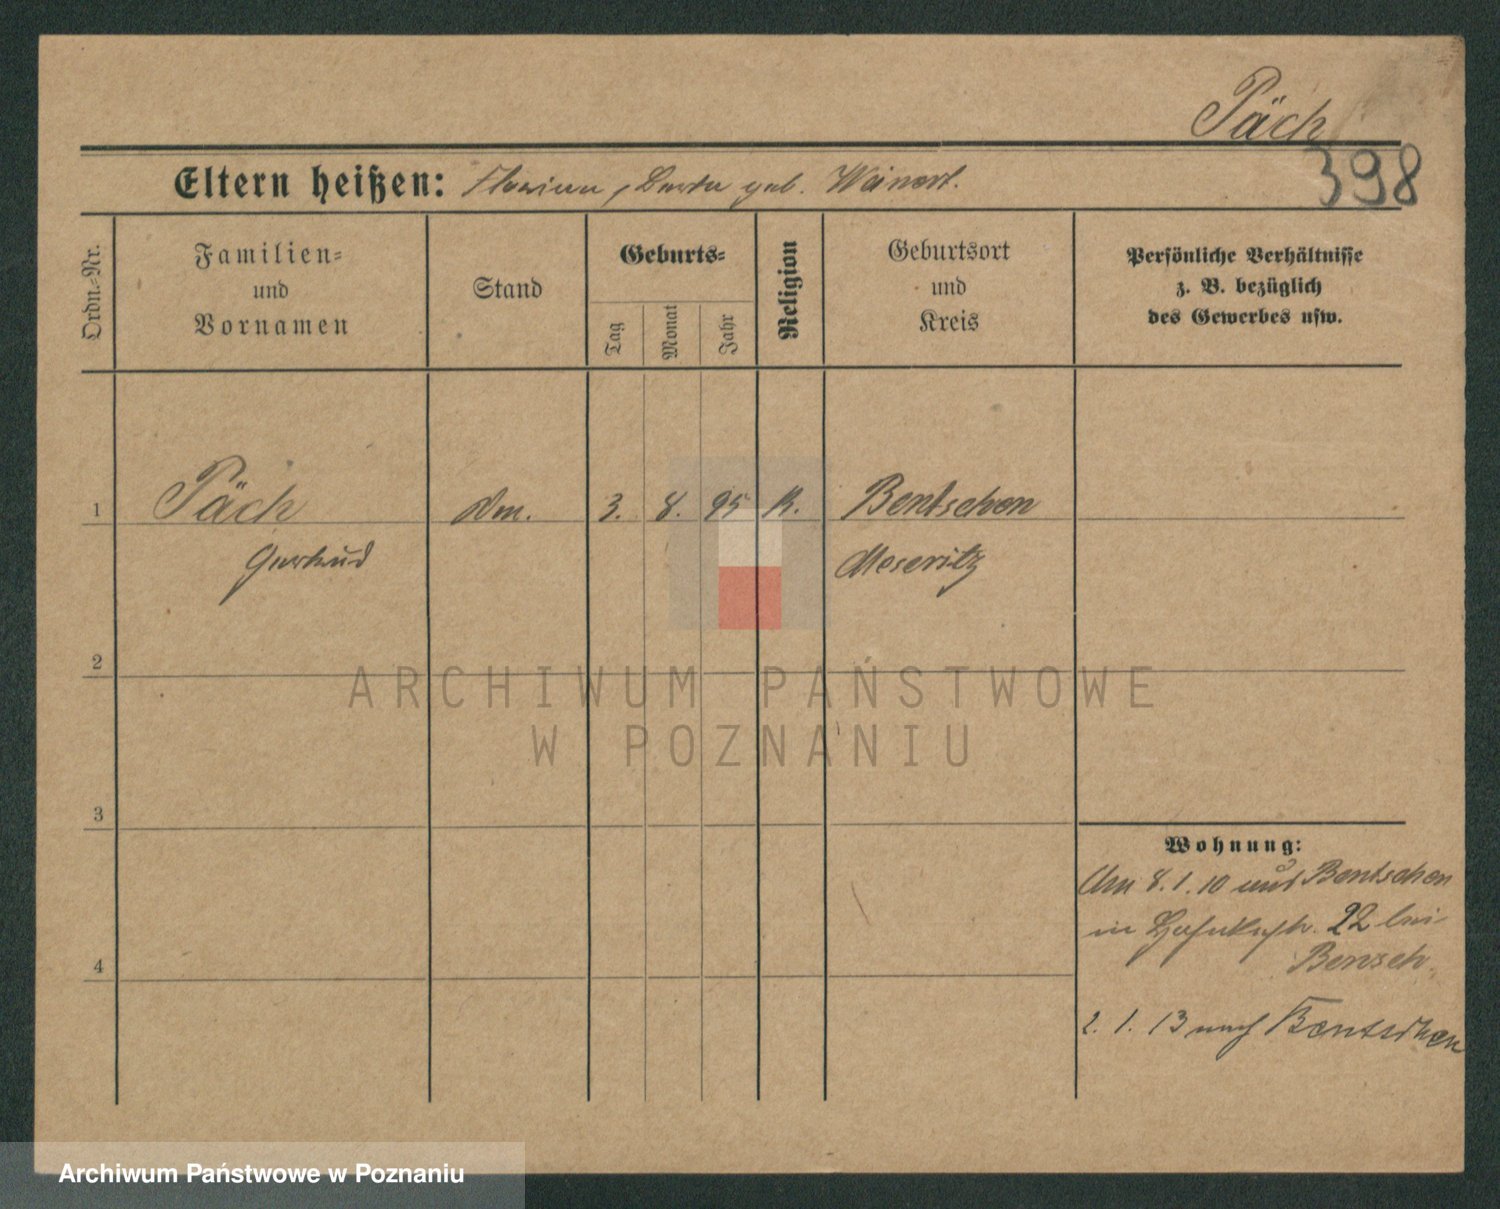 Päch
398
Eltern heißen: Florian, Berta geb. Weinert.
Ordn.-Nr.
Familien=
und
Vornamen
Stand
Geburts=
Tag
Monat
Jahr
Religion
Geburtsort
und
Kreis
Persönliche Verhältnisse
z. B. bezüglich
des Gewerbes usw.
1 Päch Dm. 3. 8. 95 K. Bentschen
Gertrud Meseritz
2
ARCHIWUM PAŃSTWOWE
W POZNANIU
3
Wohnung:
Am 8.1.10 aus Bentschen
in 22 bei
Bensch.
4
2. 1. 13 nach Bentschen
Archiwum Państwowe w Poznaniu